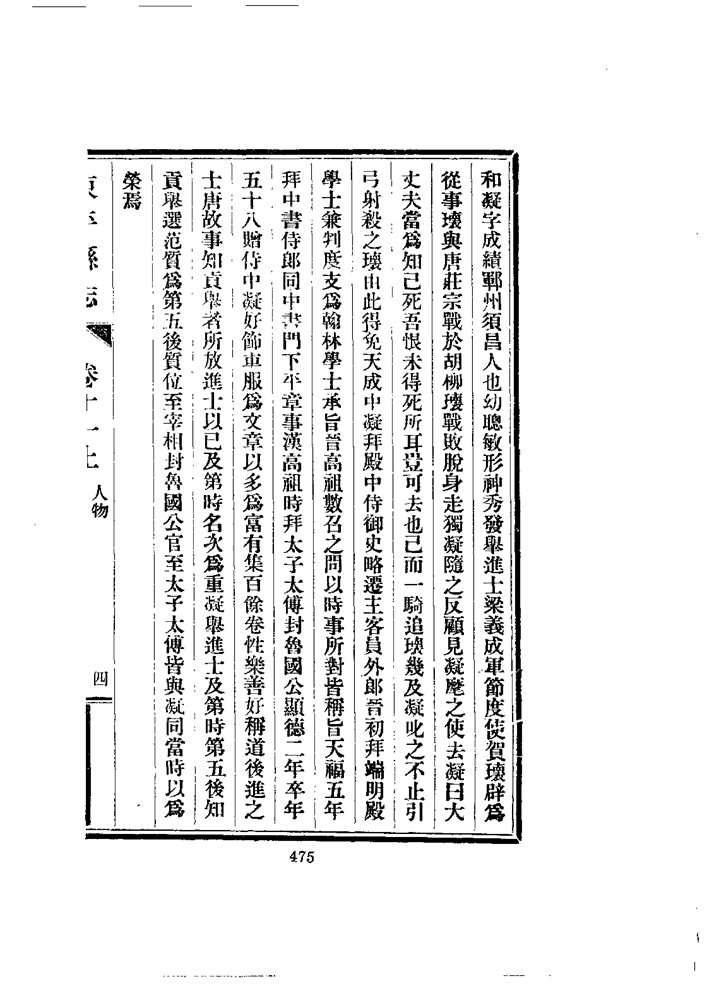 和凝字成績鄆州須昌人也幼聰敏形神秀發舉進士梁義成軍節度使賀瓌辟爲
從事瓌與唐莊宗戰於胡柳瓌戰敗脫身走獨凝隨之反顧見凝麾之使去凝曰大
丈夫當爲知己死吾恨未得死所耳豈可去也已而一騎追瓌幾及凝叱之不止引
弓射殺之瓌由此得免天成中凝拜殿中侍御史略遷主客員外郎晉初拜端明殿
學士兼判度支爲翰林學士承旨晉高祖數召之問以時事所對皆稱旨天福五年
拜中書侍郎同中書門下平章事漢高祖時拜太子太傅封魯國公顯德二年卒年
五十八贈侍中凝好飾車服爲文章以多爲富有集百餘卷性樂善好稱道後進之
士唐故事知貢舉者所放進士以已及第時名次爲重凝舉進士及第時第五後知
貢舉選范質爲第五後質位至宰相封魯國公官至太子太傅皆與凝同當時以爲
榮焉
東平縣志 卷十一上 人物 四
475